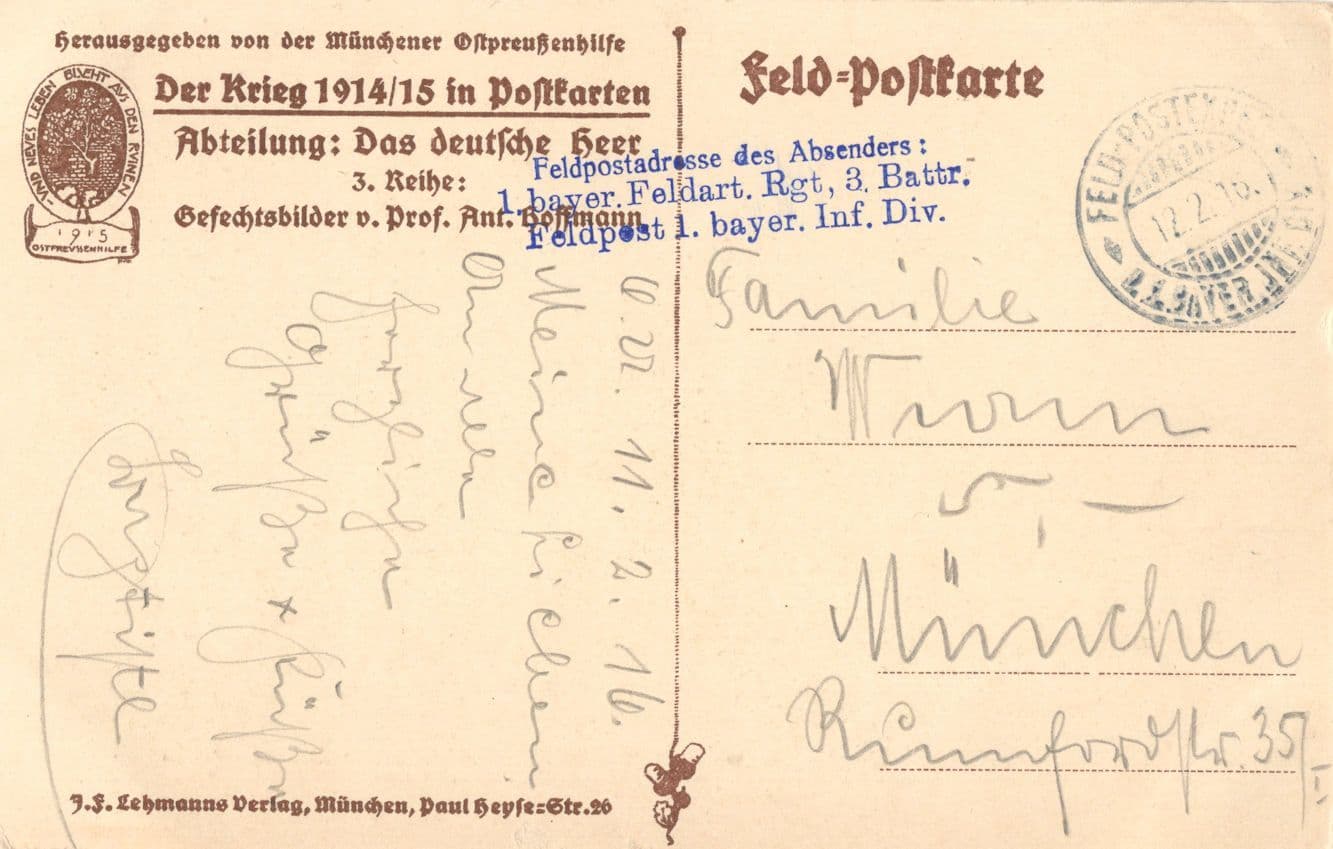 Herausgegeben von der Münchener Ostpreußenhilfe
Der Krieg 1914/15 in Postkarten
Abteilung: Das deutsche Heer
3. Reihe:
Gefechtsbilder v. Prof. Ant. Hoffmann
VND NEVES LEBEN BLVEHT AVS DEN RVINEN
1915
OSTPREVSSENHILFE
Feld-Postkarte
Feldpostadresse des Absenders:
1. bayer. Feldart. Rgt, 3. Battr.
Feldpost 1. bayer. Inf. Div.
FELD-POSTEXPED.
12.2.16.
D. 1. BAYER. INF. DIV.
Familie
München
Rumfordstr. 35/I
11. 2. 16.
Meine Lieben
herzliche
Grüße + Küße
J. F. Lehmanns Verlag, München, Paul Heyse-Str. 26